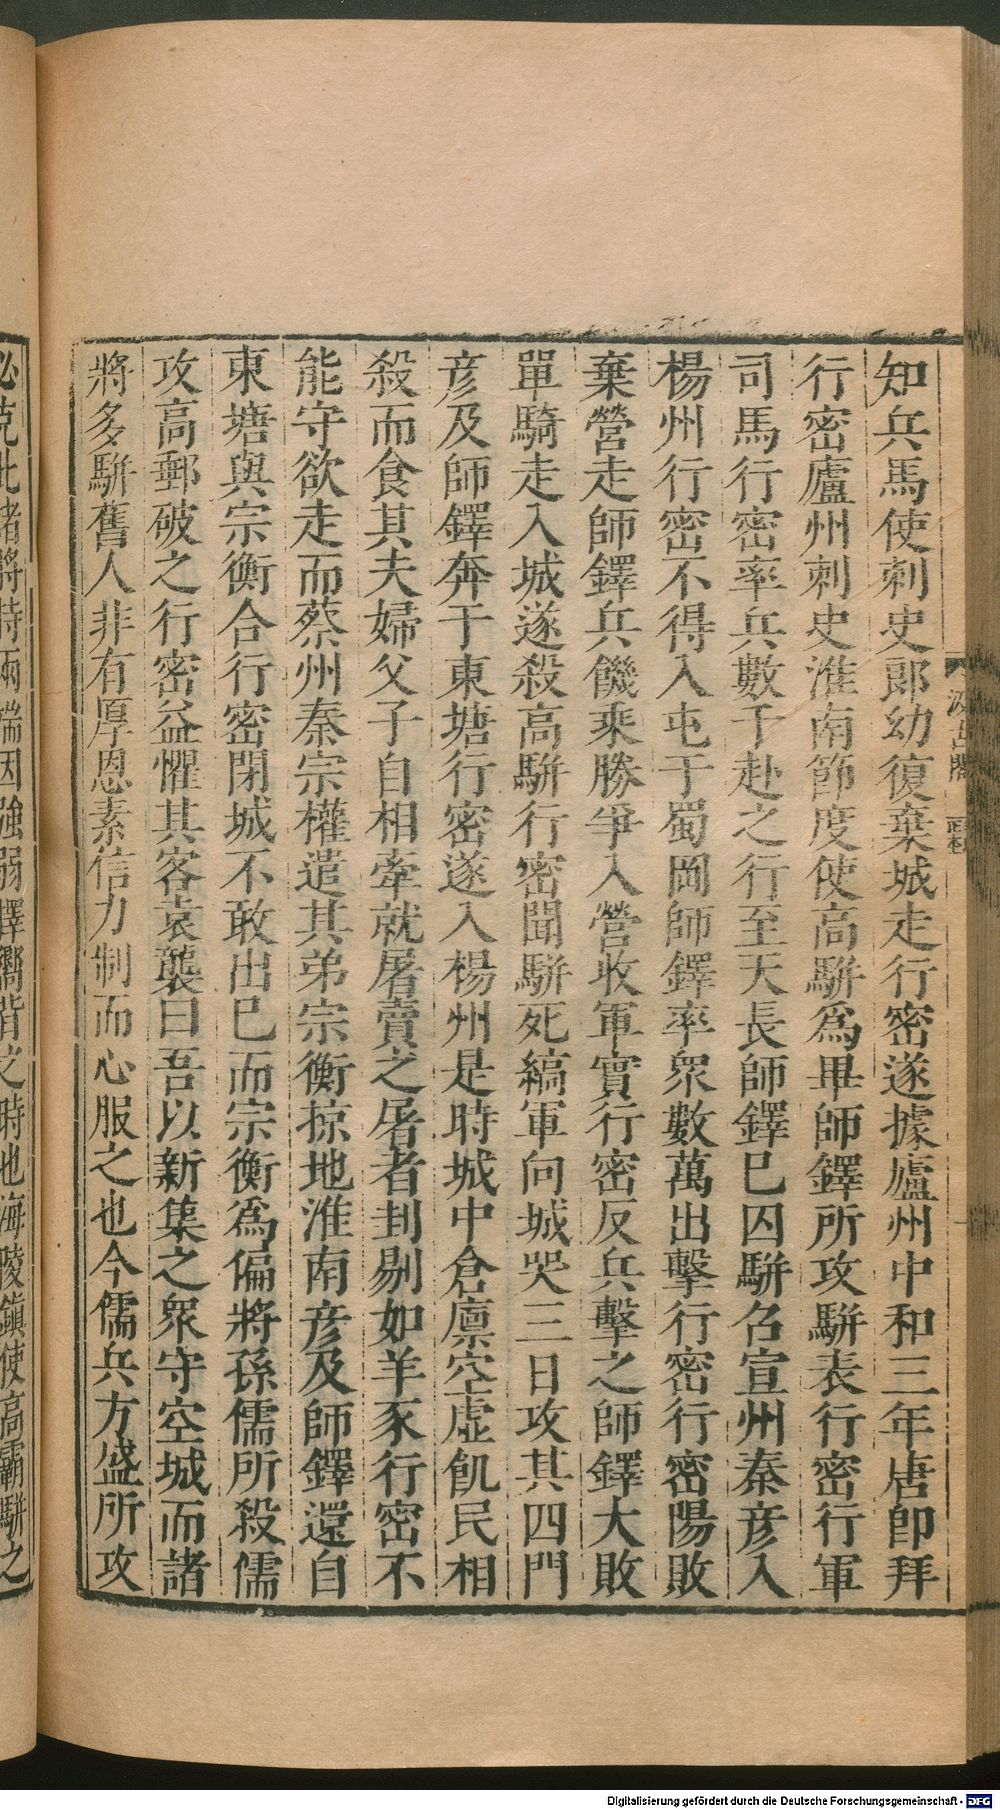 知兵馬使刺史郎幼復棄城走行密遂據廬州中和三年唐卽拜
行密廬州刺史淮南節度使高駢爲畢師鐸所攻駢表行密行軍
司馬行密率兵數千赴之行至天長師鐸巳囚駢召宣州秦彥入
楊州行密不得入屯于蜀岡師鐸率衆數萬出擊行密行密陽敗
棄營走師鐸兵饑乘勝爭入營收軍實行密反兵擊之師鐸大敗
單騎走入城遂殺高駢行密聞駢死縞軍向城哭三日攻其四門
彥及師鐸奔于東塘行密遂入楊州是時城中倉廩空虛飢民相
殺而食其夫婦父子自相牽就屠賣之屠者刲剔如羊豕行密不
能守欲走而蔡州秦宗權遣其弟宗衡掠地淮南彥及師鐸還自
東塘與宗衡合行密閉城不敢出巳而宗衡爲偏將孫儒所殺儒
攻高郵破之行密益懼其客袁襲曰吾以新集之衆守空城而諸
將多駢舊人非有厚恩素信力制而心服之也今儒兵方盛所攻
必克此諸將持兩端因強弱擇嚮背之時也海陵鎮使高霸駢之